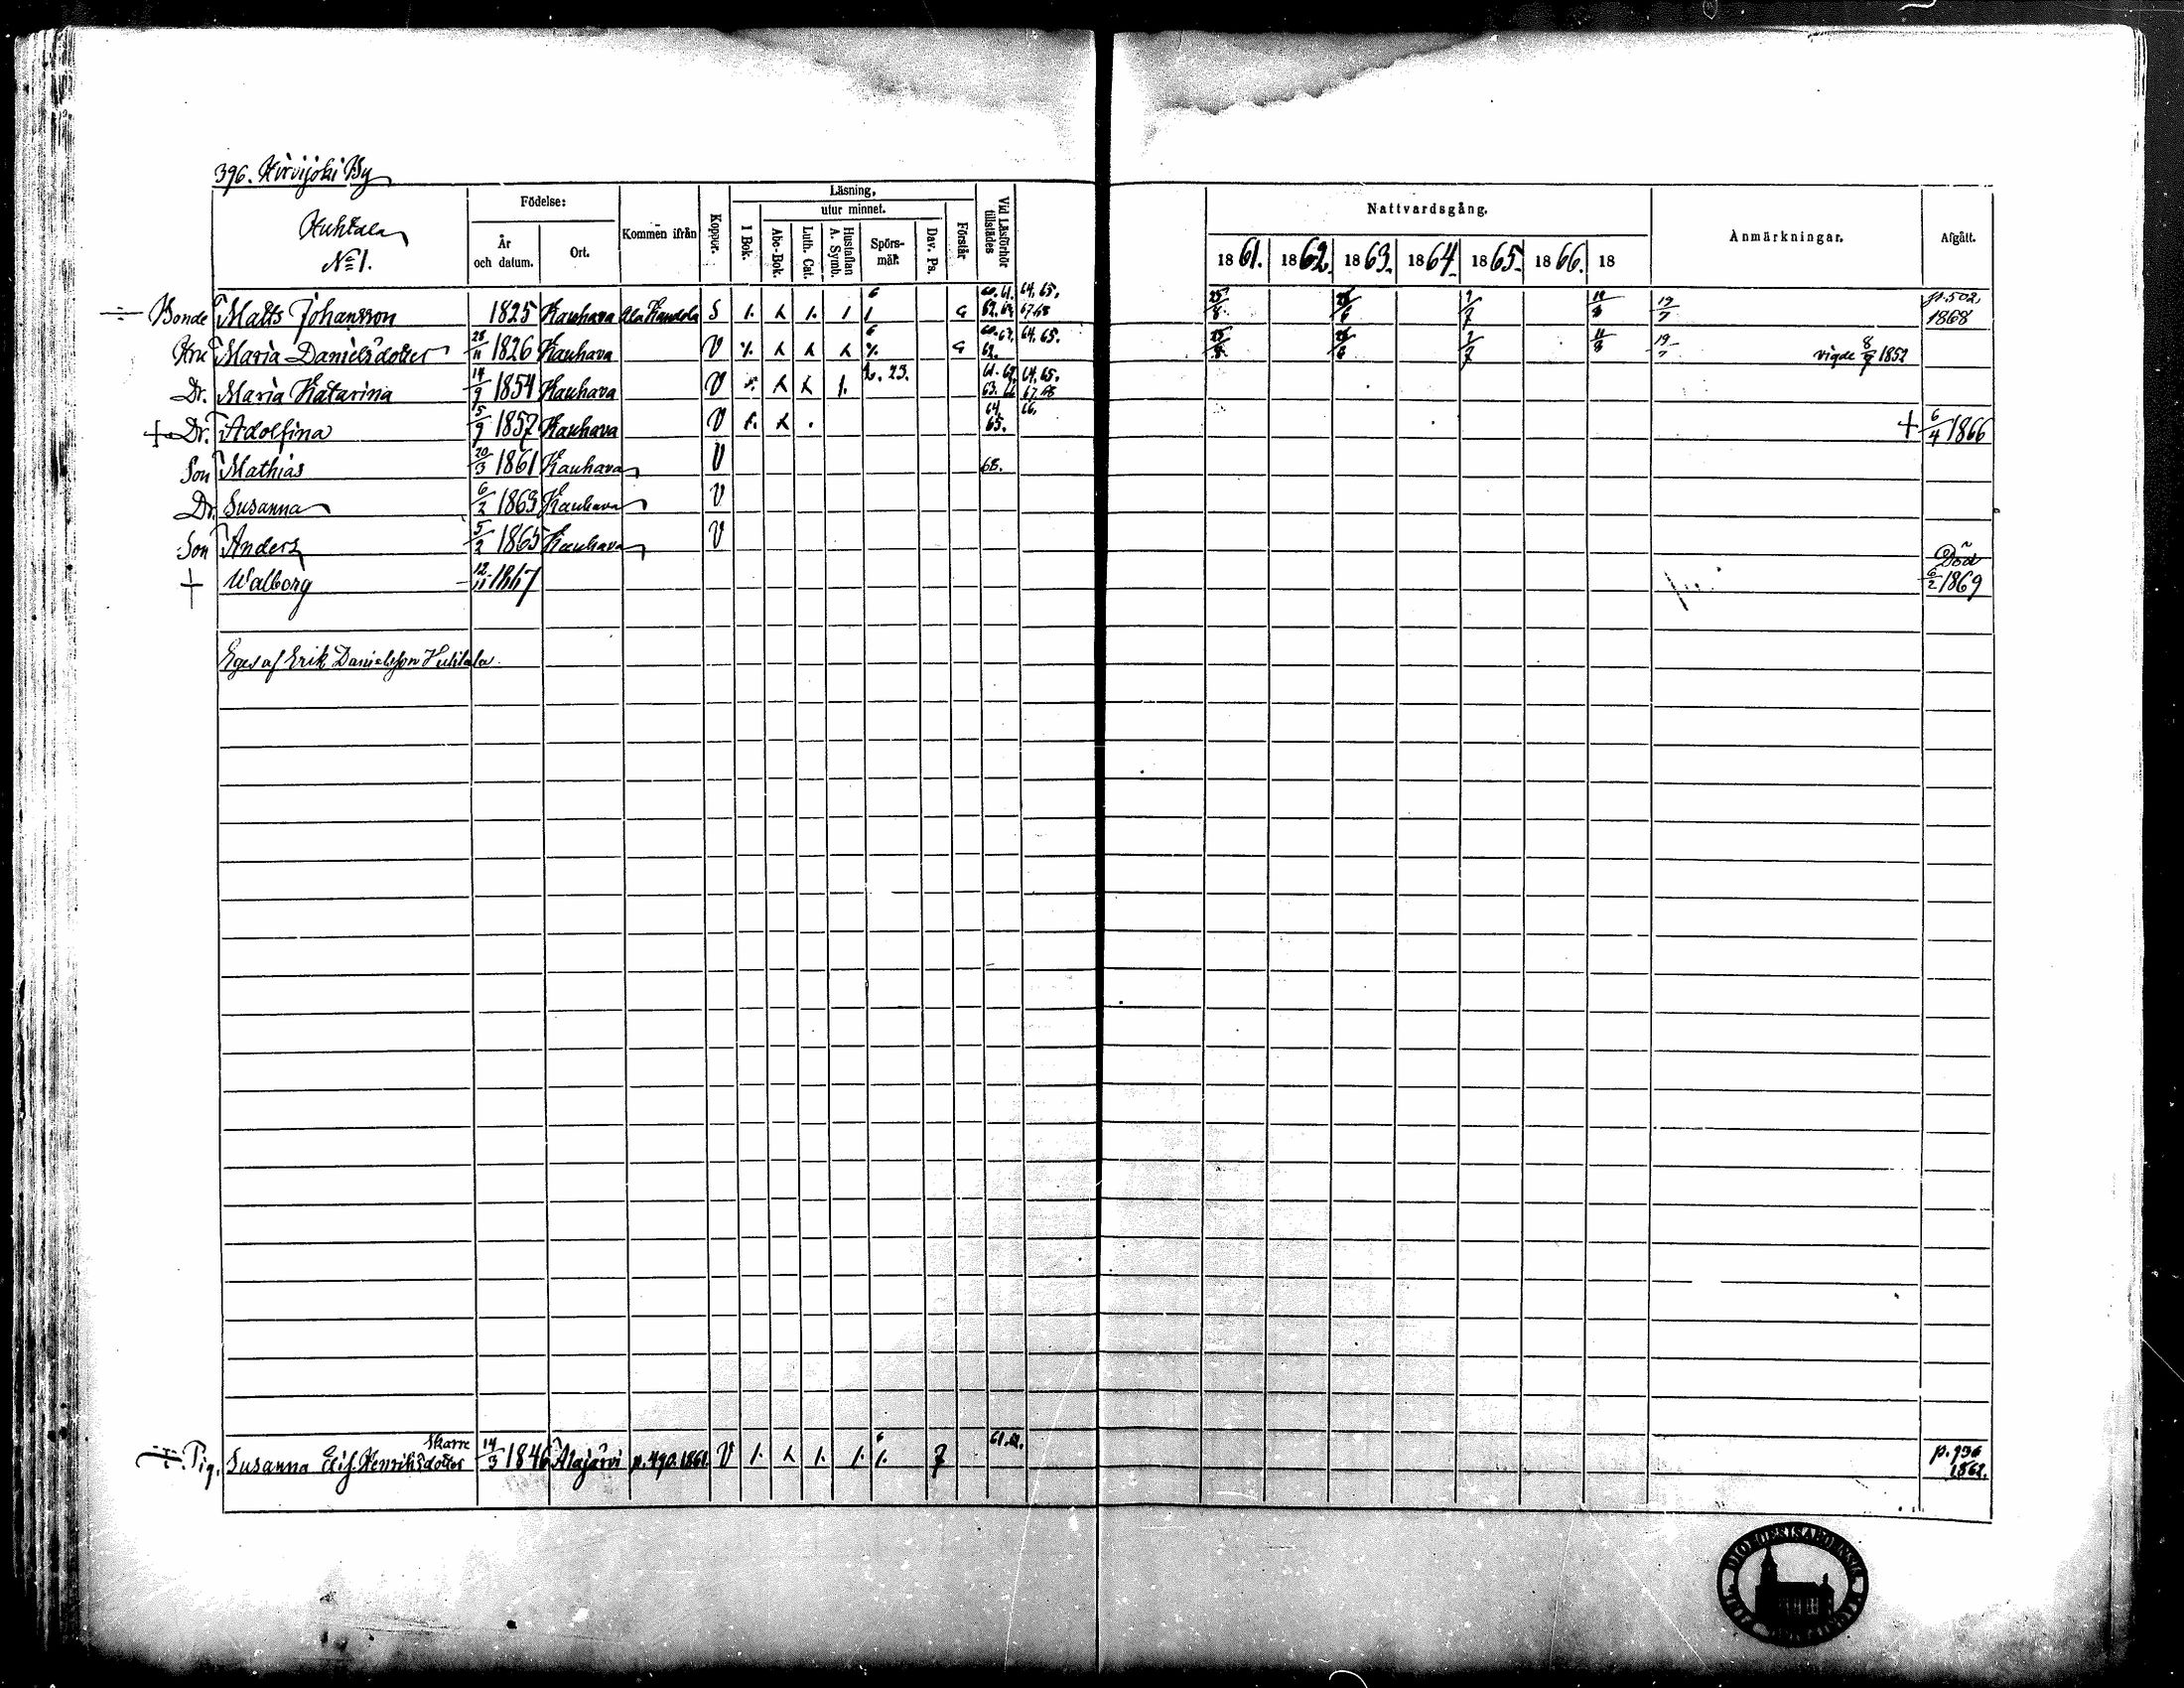 396. Hirvijoki By
Huhtala
No 1.
Födelse:
År och datum.
Ort.
Kommen ifrån
Koppor.
Läsning,
utur minnet.
I Bok.
Abc-Bok.
Luth. Cat.
Hustaflan A. Symb.
Spörs-mål.
Dav. Ps.
Förstår
Vid Läsförhör tillstädes
Nattvardsgång.
1861. 1862. 1863. 1864. 1865. 1866. 18
Anmärkningar.
Afgått.
÷ Bonde Matts Johansson 1825 Kauhava Ala Kandola S 1. 1. 1 1 6 G 60. 61. 64. 65. 62. 63. 67.68 25/8 28/6 2/7 19/7 p. 502. 1868
Hru Maria Danielsdotter 28/11 1826 Kauhava V G 64. 65. 62. 25/8 28/6 2/7 11/3 19/7 vigde 8/7 1852
Dr. Maria Katarina 14/9 1854 Kauhava V 1. 2. 23. 61. 62. 64. 65. 63. 66 67.68
+ Dr. Adolfina 15/9 1857 Kauhava V 64. 66. 65. + 6/4 1866
Son Mathias 20/3 1861 Kauhava V 68.
Dr. Susanna 6/2 1863 Kauhava V
Son Anders 5/2 1865 Kauhava V
+ Walborg 12/11 1867 Död 6/2 1869
Eges af Erik Danielsson Huhtala
÷ Pig. Susanna Elis. Henriksdotter Skarre 14/3 1846 Alajärvi p. 490. 1861. V 1. 1. 1. 6 1. 7 61. 62. p. 936 1862.